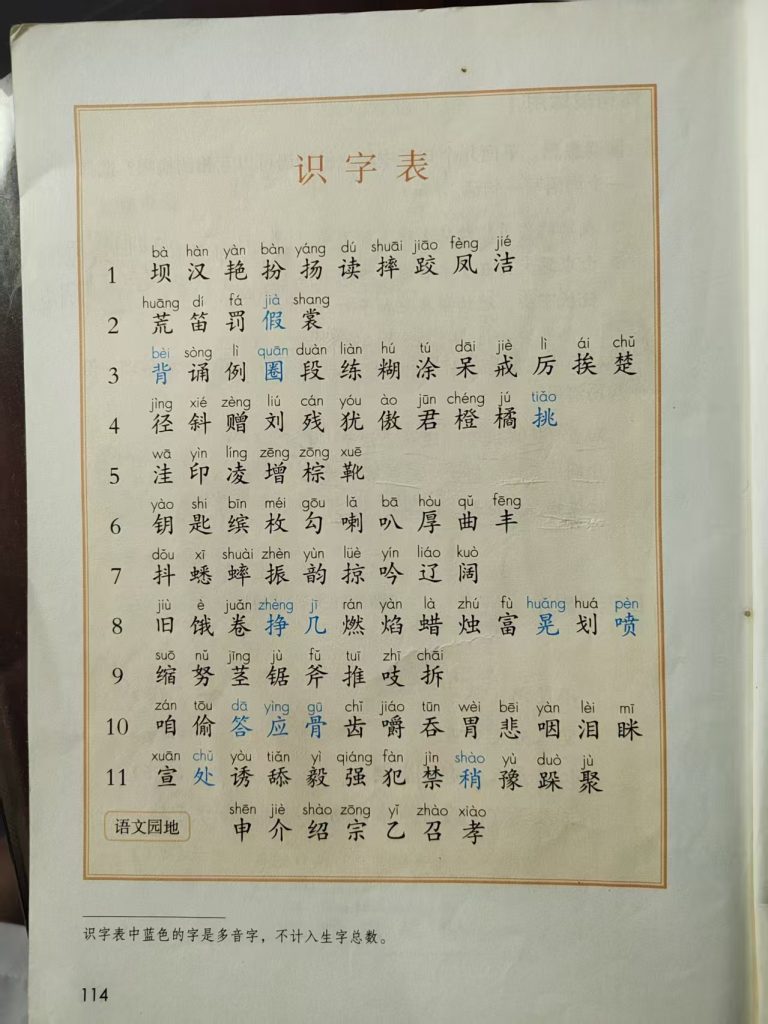 识字表
bà hàn yàn bàn yáng dú shuāi jiāo fèng jié
1 坝 汉 艳 扮 扬 读 摔 跤 凤 洁
huāng dí fá jià shang
2 荒 笛 罚 假 裳
bèi sòng lì quān duàn liàn hú tú dāi jiè lì ái chǔ
3 背 诵 例 圈 段 练 糊 涂 呆 戒 厉 挨 楚
jìng xié zèng liú cán yóu ào jūn chéng jú tiǎo
4 径 斜 赠 刘 残 犹 傲 君 橙 橘 挑
wā yìn líng zēng zōng xuē
5 洼 印 凌 增 棕 靴
yào shi bīn méi gōu lǎ bā hòu qǔ fēng
6 钥 匙 缤 枚 勾 喇 叭 厚 曲 丰
dǒu xī shuài zhèn yùn lüè yín liáo kuò
7 抖 蟋 蟀 振 韵 掠 吟 辽 阔
jiù è juǎn zhèng jī rán yàn là zhú fù huǎng huá pèn
8 旧 饿 卷 挣 几 燃 焰 蜡 烛 富 晃 划 喷
suō nǔ jīng jù fǔ tuī zhī chāi
9 缩 努 茎 锯 斧 推 吱 拆
zán tōu dā yìng gū chǐ jiáo tūn wèi bēi yàn lèi mī
10 咱 偷 答 应 骨 齿 嚼 吞 胃 悲 咽 泪 眯
xuān chǔ yòu tiǎn yì qiáng fàn jìn shào yù duò jù
11 宣 处 诱 舔 毅 强 犯 禁 稍 豫 跺 聚
shēn jiè shào zōng yǐ zhào xiào
语文园地 申 介 绍 宗 乙 召 孝
识字表中蓝色的字是多音字，不计入生字总数。
114